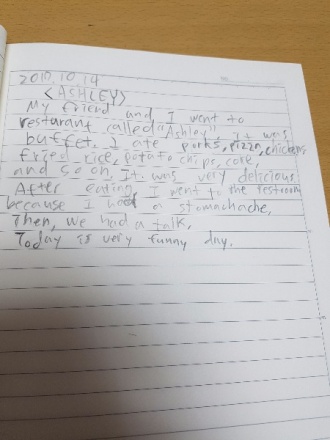 2010.10.14
<ASHLEY>
My friend and I went to
resturant called "Ashley". It was
buffet. I ate porks, pizza, chickens
fried rice, potato chips, core,
and so on. It was very delicious
After eating I went to the restroom
because I had a stomachache,
Then, we had a talk,
Today is very funny day.